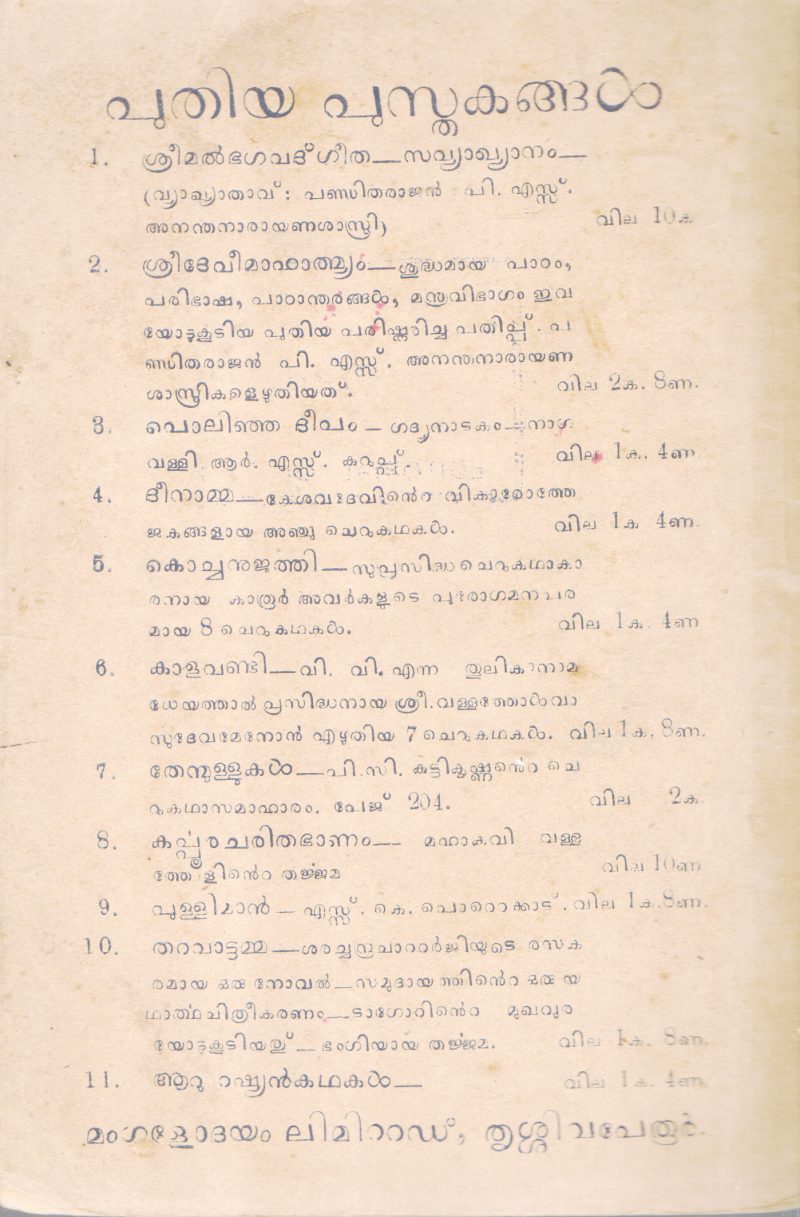 പുതിയ പുസ്തകങ്ങൾ
1. ശ്രീമൽഭഗവദ്ഗീത—സവ്യാഖ്യാനം—
(വ്യാഖ്യാതാവ്: പണ്ഡിതരാജൻ പി. എസ്സ്.
അനന്തനാരായണശാസ്ത്രി) വില 10ക
2. ശ്രീദേവീമാഹാത്മ്യം—ശുദ്ധമായ പാഠം,
പരിഭാഷ, പാഠാന്തരങ്ങൾ, മന്ത്രവിഭാഗം ഇവ
യോടുകൂടിയ പുതിയ പരിഷ്ക്കരിച്ച പതിപ്പ്. പ
ണ്ഡിതരാജൻ പി. എസ്സ്. അനന്തനാരായണ
ശാസ്ത്രികളെഴുതിയത്. വില 2ക. 8ണ.
3. പൊലിഞ്ഞ ദീപം — ഗദ്യനാടകം—നാഗ
വള്ളി ആർ. എസ്സ്. കുറുപ്പ്. വില 1ക. 4ണ
4. ദീനാമ്മ—കേശവദേവിൻെറ വികാരോത്തേ
ജകങ്ങളായ അഞ്ചു ചെറുകഥകൾ. വില 1ക 4ണ.
5. കൊച്ചനുജത്തി—സുപ്രസിദ്ധ ചെറുകഥാകാ
രനായ കാരൂർ അവർകളുടെ പുരോഗമനപര
മായ 8 ചെറുകഥകൾ. വില 1ക. 4ണ
6. കാളവണ്ടി—വി. വി. എന്ന തൂലികാനാമ
ധേയത്താൽ പ്രസിദ്ധനായ ശ്രീ. വള്ളത്തോൾവാ
സുദേവമേനോൻ എഴുതിയ 7 ചെറുകഥകൾ. വില 1ക. 8ണ.
7. തേന്മുള്ളുകൾ—പി. സി. കുട്ടികൃഷ്ണൻെറ ചെ
റുകഥാസമാഹാരം. പേജ് 204. വില 2ക
8. കർപ്പൂരചരിതഭാണം— മഹാകവി വള്ള
ത്തോളിൻെറ തർജ്ജമ വില 10ണ
9. പുള്ളിമാൻ — എസ്സ്. കെ. പൊറെറക്കാട്. വില 1ക. 8ണ.
10. തറവാട്ടമ്മ—ശരച്ചന്ദ്രചാററർജിയുടെ രസക
രമായ ഒരു നോവൽ—സമുദായത്തിൻെറ ഒരു യ
ഥാർത്ഥചിത്രീകരണം—ടാഗോറിൻെറ മുഖവുര
യോടുകൂടിയതു്—ഭംഗിയായ തർജ്ജമ. വില 1ക. 8ണ.
11. ആറു റഷ്യൻകഥകൾ— വില 1ക. 4ണ
മംഗളോദയം ലിമിററഡ്, തൃശ്ശിവപേരൂർ.